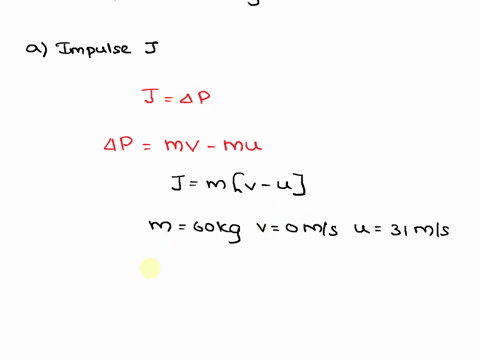 a) Impulse J
J = ΔP
ΔP = mv - mu
J = m[v - u]
m = 60kg v = 0 m/s u = 31 m/s